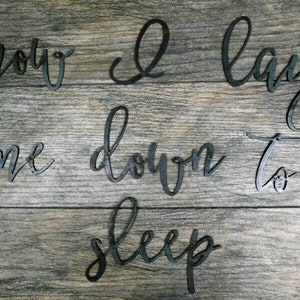 now I lay
me down to
sleep